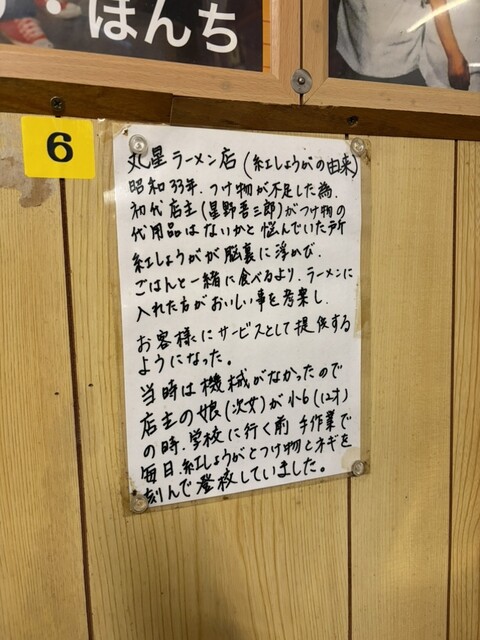 ・ぼんち
6
丸星ラーメン店(紅しょうがの由来)
昭和33年、つけ物が不足した為、
初代店主(星野吾三郎)がつけ物の
代用品はないかと悩んでいた所
紅しょうがが脳裏に浮かび、
ごはんと一緒に食べるより、ラーメンに
入れた方がおいしい事を考案し、
お客様にサービスとして提供する
ようになった。
当時は機械がなかったので
店主の娘(次女)が小6(12才)
の時、学校に行く前 手作業で
毎日、紅しょうがとつけ物とネギを
刻んで登校していました。